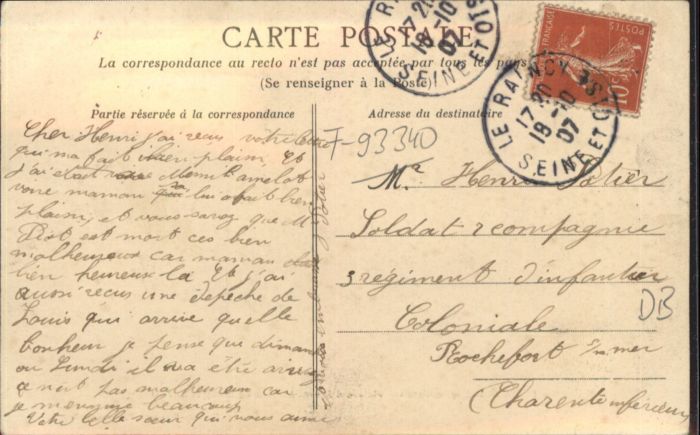 CARTE POSTALE
La correspondance au recto n'est pas acceptée par tous les pays
(Se renseigner à la Poste)
Partie réservée à la correspondance
Adresse du destinataire
LE RAINCY
17 20
18-10
07
SEINE ET OISE
LE RAINCY
17 20
18-10
07
SEINE ET OISE
POSTES
10
F-93340
DB
Cher Henri j'ai recus votre lettre
qui ma fait bien plaisir, Et
j'ai était
votre maman lui a fait bien
plaisir, et vous savez que M
est mort ces bien
malheureux car maman
bien heureuse la Et j'ai
aussi recus une depeche de
Louis qui arrive quelle
bonheur je pense que dimanche
ou Lundi il
ce nort pas malheureux car
je m'ennuie beaucoup
Votre belle sœur qui vous aime
Mr Henri
Soldat compagnie
3 regiment d'infanterie
Coloniale
Rochefort s/mer
(Charente inférieure